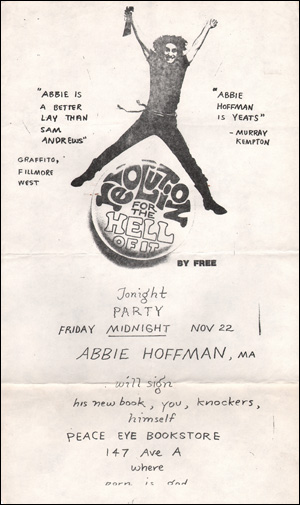 "ABBIE IS
A BETTER
LAY THAN
SAM
ANDREWS"
GRAFFITO,
FILLMORE
WEST
"ABBIE
HOFFMAN
IS YEATS"
-MURRAY
KEMPTON
REVOLUTION
FOR THE
HELL
OF IT
BY FREE
Tonight
PARTY
FRIDAY MIDNIGHT NOV 22
ABBIE HOFFMAN, MA
will sign
his new book, you, knockers,
himself
PEACE EYE BOOKSTORE
147 AVE A
where
porn is god